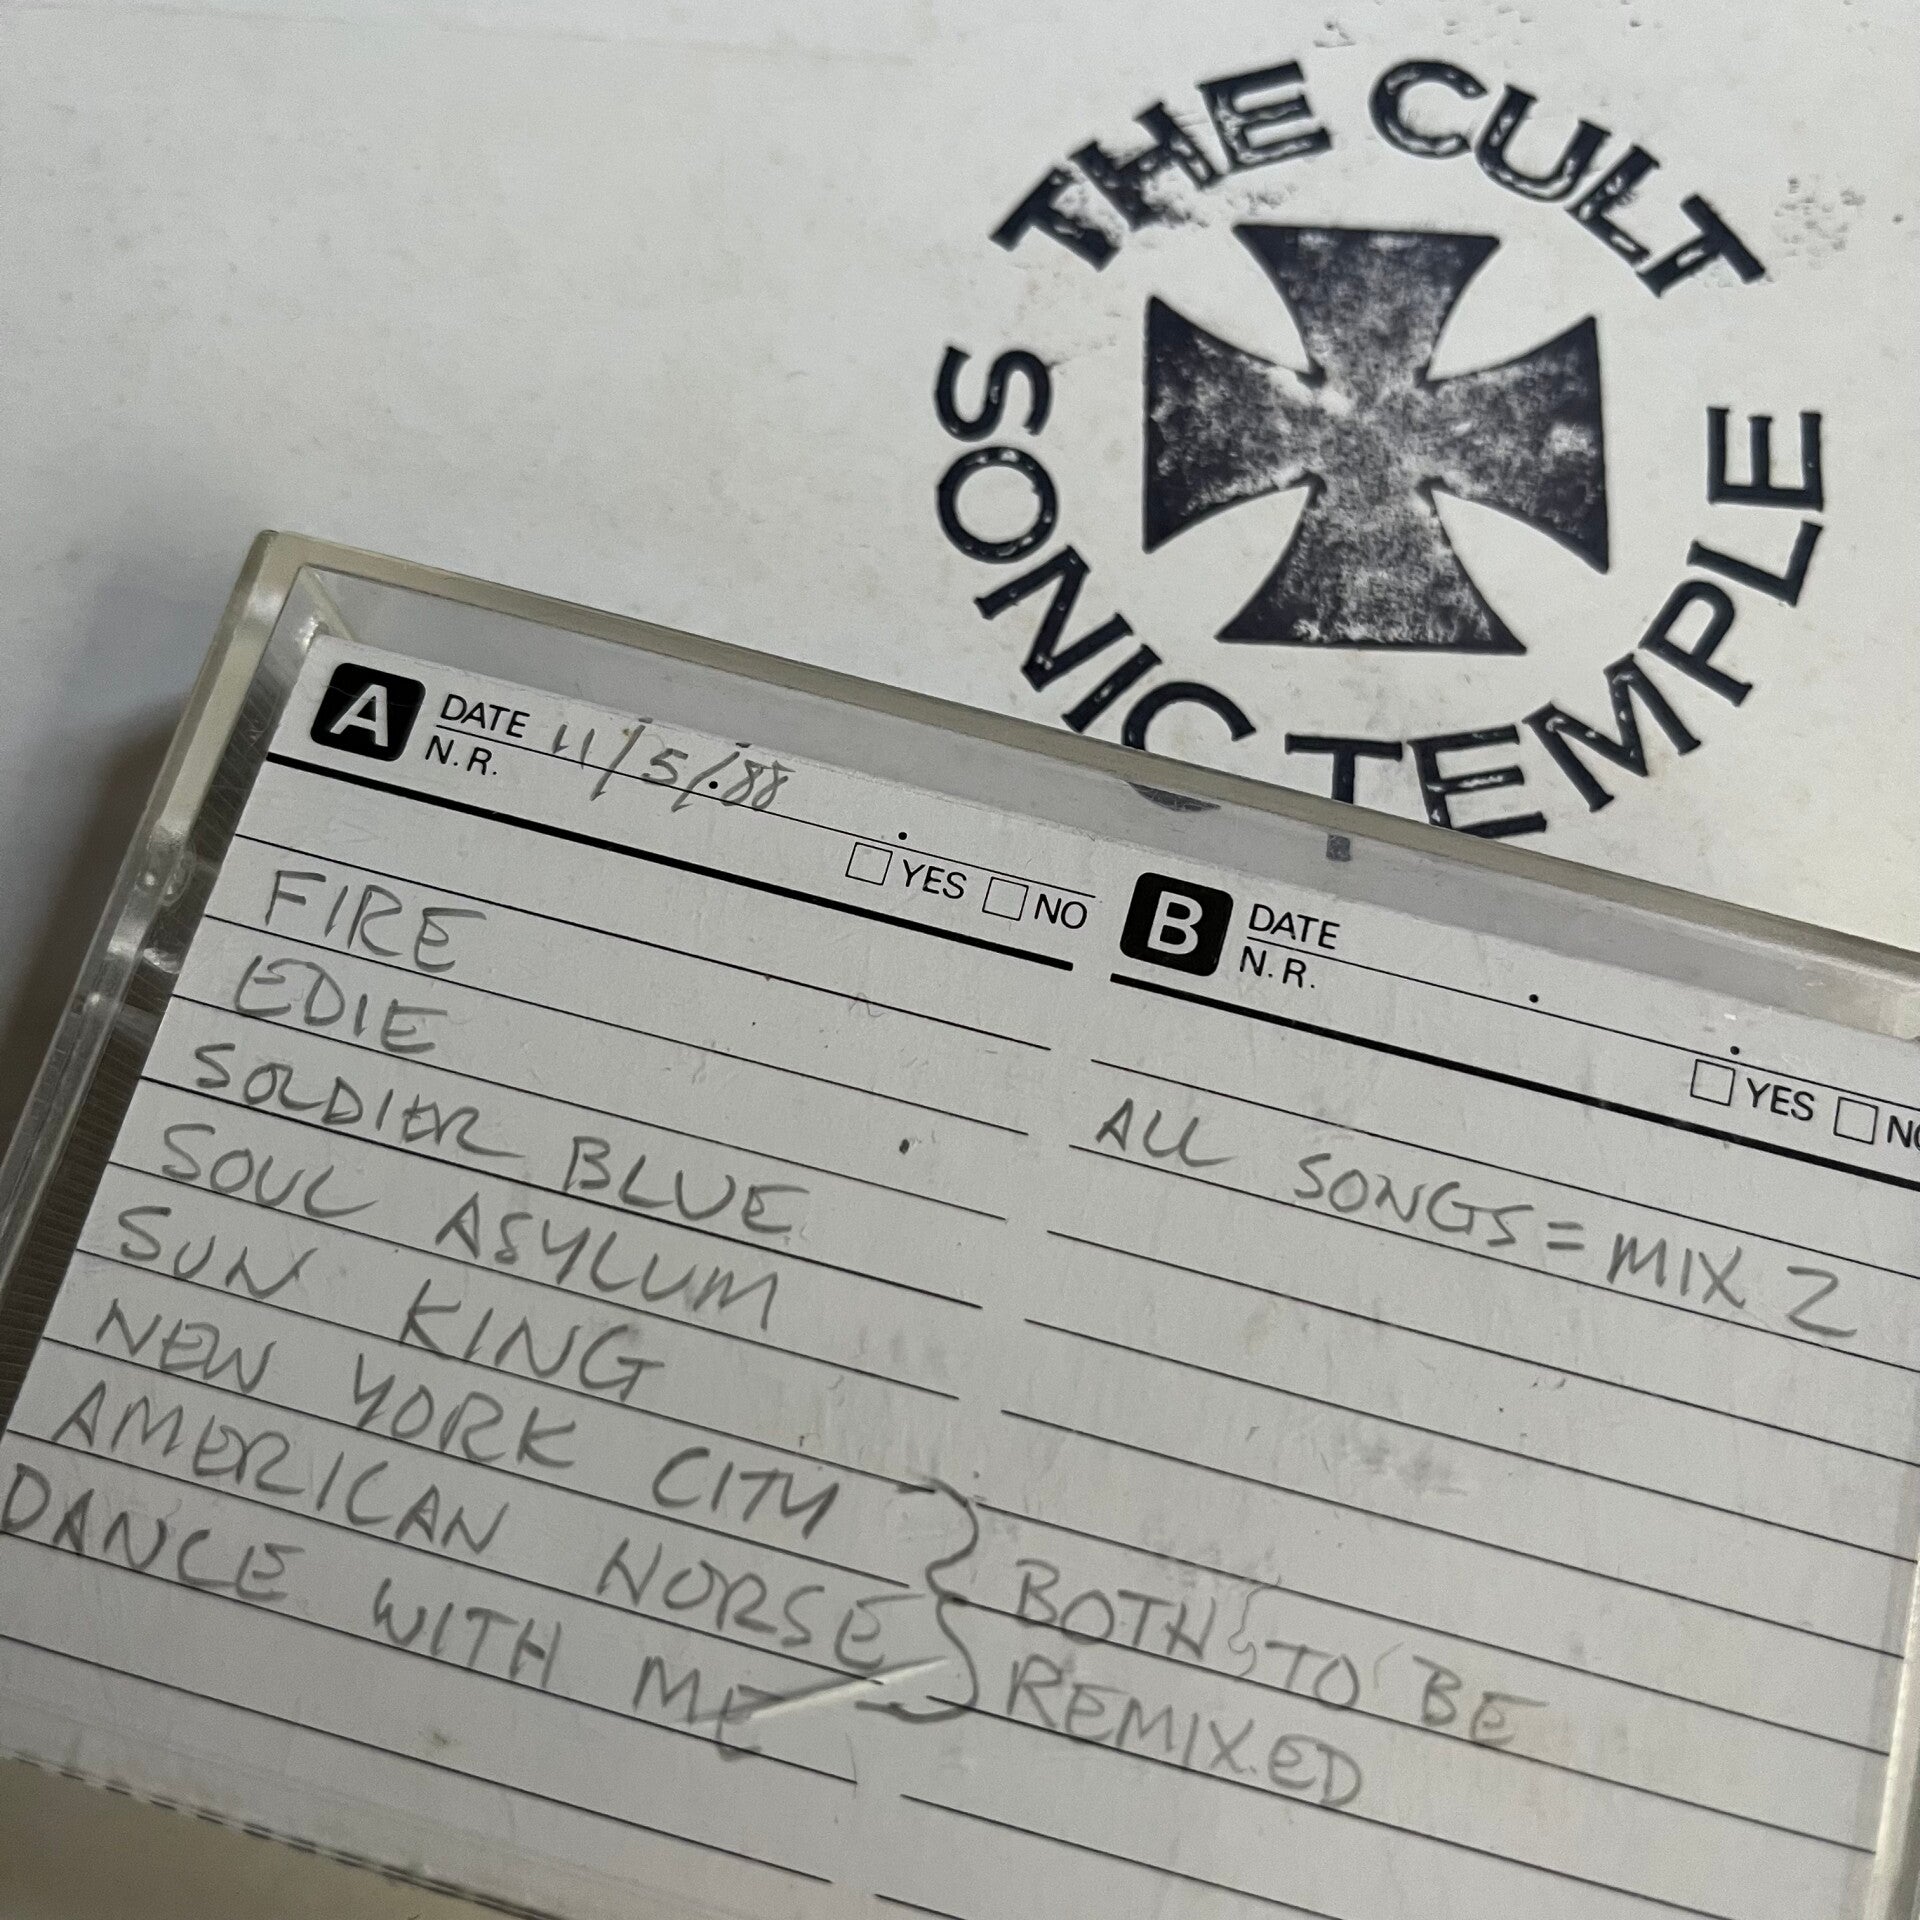 THE CULT
SONIC TEMPLE
A DATE 11/5/.88
N.R.
YES NO
FIRE
EDIE
SOLDIER BLUE
SOUL ASYLUM
SUN KING
NEW YORK CITY
AMERICAN HORSE
DANCE WITH ME
B DATE
N.R.
YES NO
ALL SONGS = MIX 2
BOTH TO BE
REMIXED